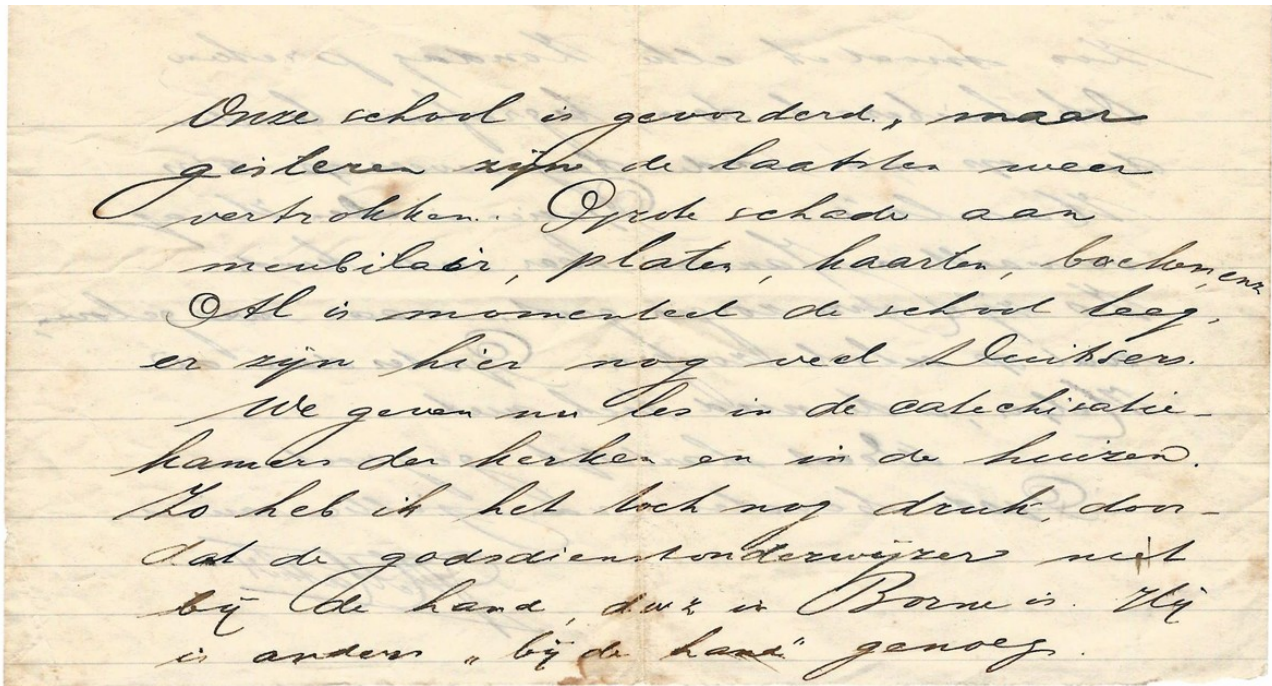 Onze school is gevorderd, maar
gisteren zijn de laatsten weer
vertrokken. Grote schade aan
meubilair, platen, kaarten, boeken, enz
Al is momenteel de school leeg,
er zijn hier nog veel Duitsers.
We geven nu les in de catechisatie-
kamers der kerken en in de huizen.
Zo heb ik het toch nog druk, door-
dat de godsdienstonderwijzer niet
bij de hand, d.w.z in Borne is. Hij
is anders „bij de hand" genoeg.